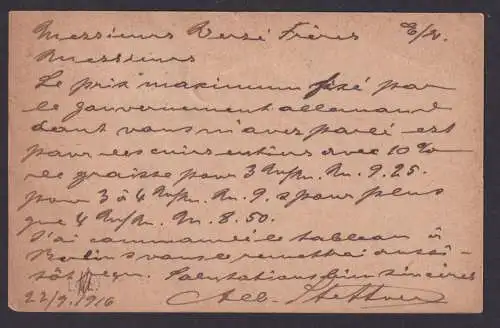 Messieurs Versé Frères E/V.
Messieurs
Le prix maximum fixé par
le gouvernement allemand
dont vous m'avez parlé est
pour les cuirs entiers avec 10 %
de graisse pour 3 M. 9.25.
pour 3 à 4 M. 9. & pour plus
que 4 M. 8.50.
J'ai commandé le tableau à
Berlin & vous le remettrai aussi-
tôt reçu. Salutations bien sincères
22/9.1916 Alb. Stettner